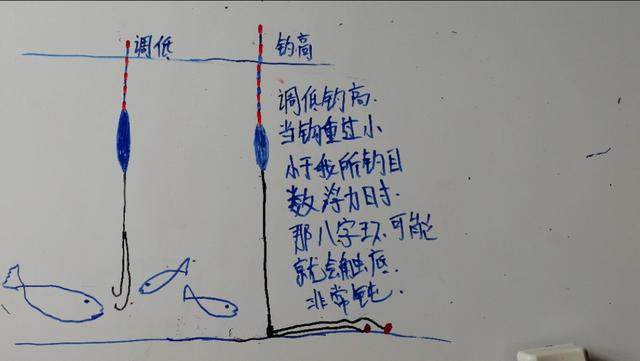 调低
钓高
调低钓高.
当钩重过小
小于我所钓目
数浮力时.
那八字环.可能
就会触底.
非常钝.